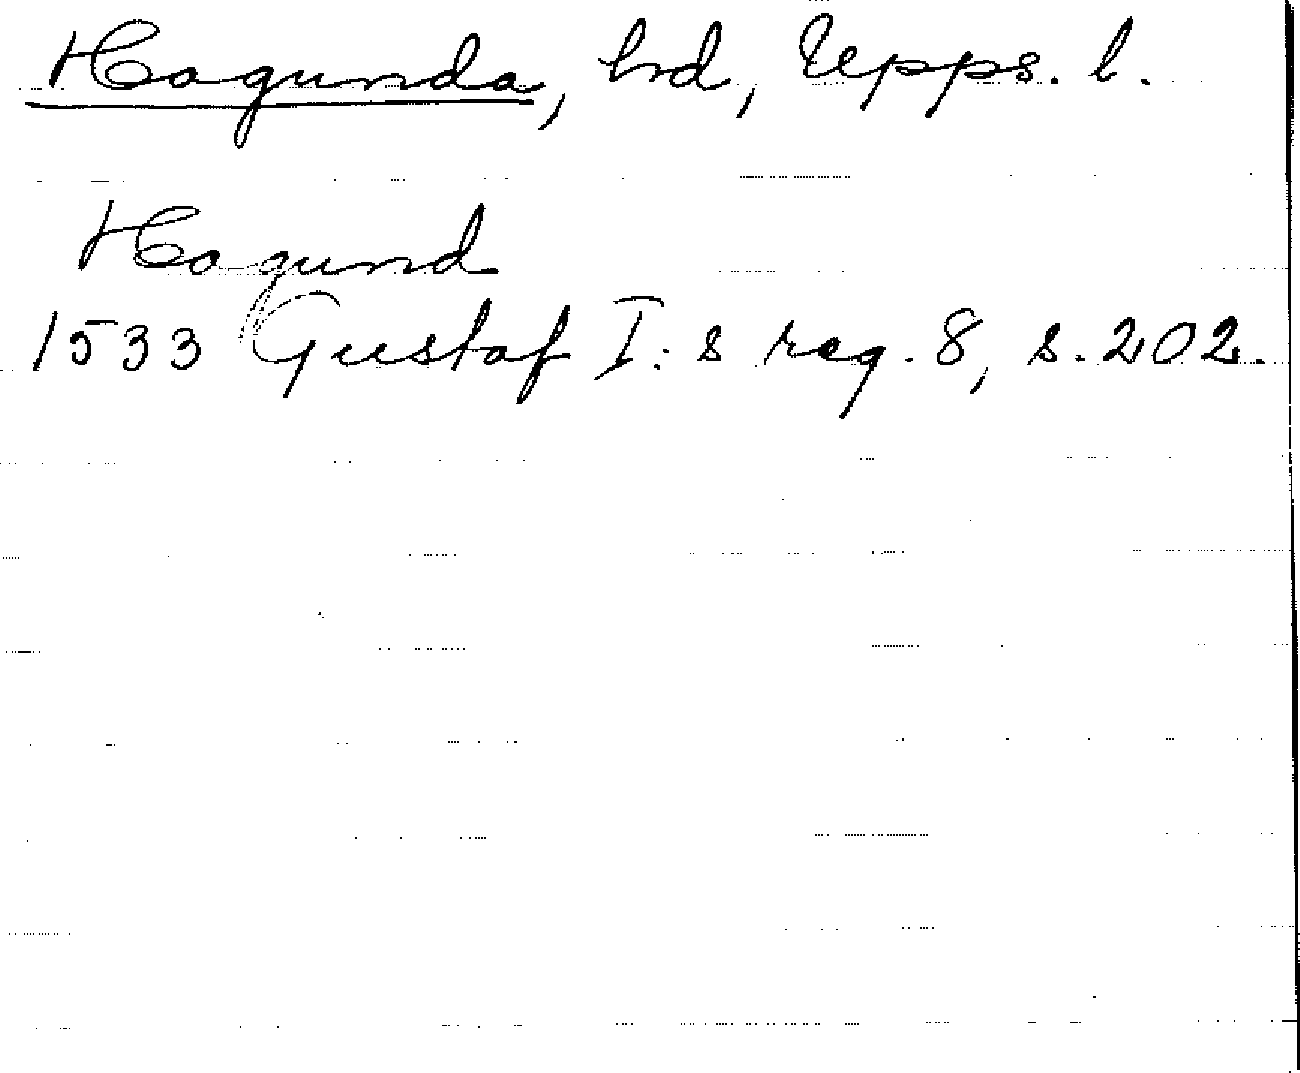 Hagunda, hd, Upps. l.
Hagund
1533 Gustaf I:s reg. 8, s. 202.